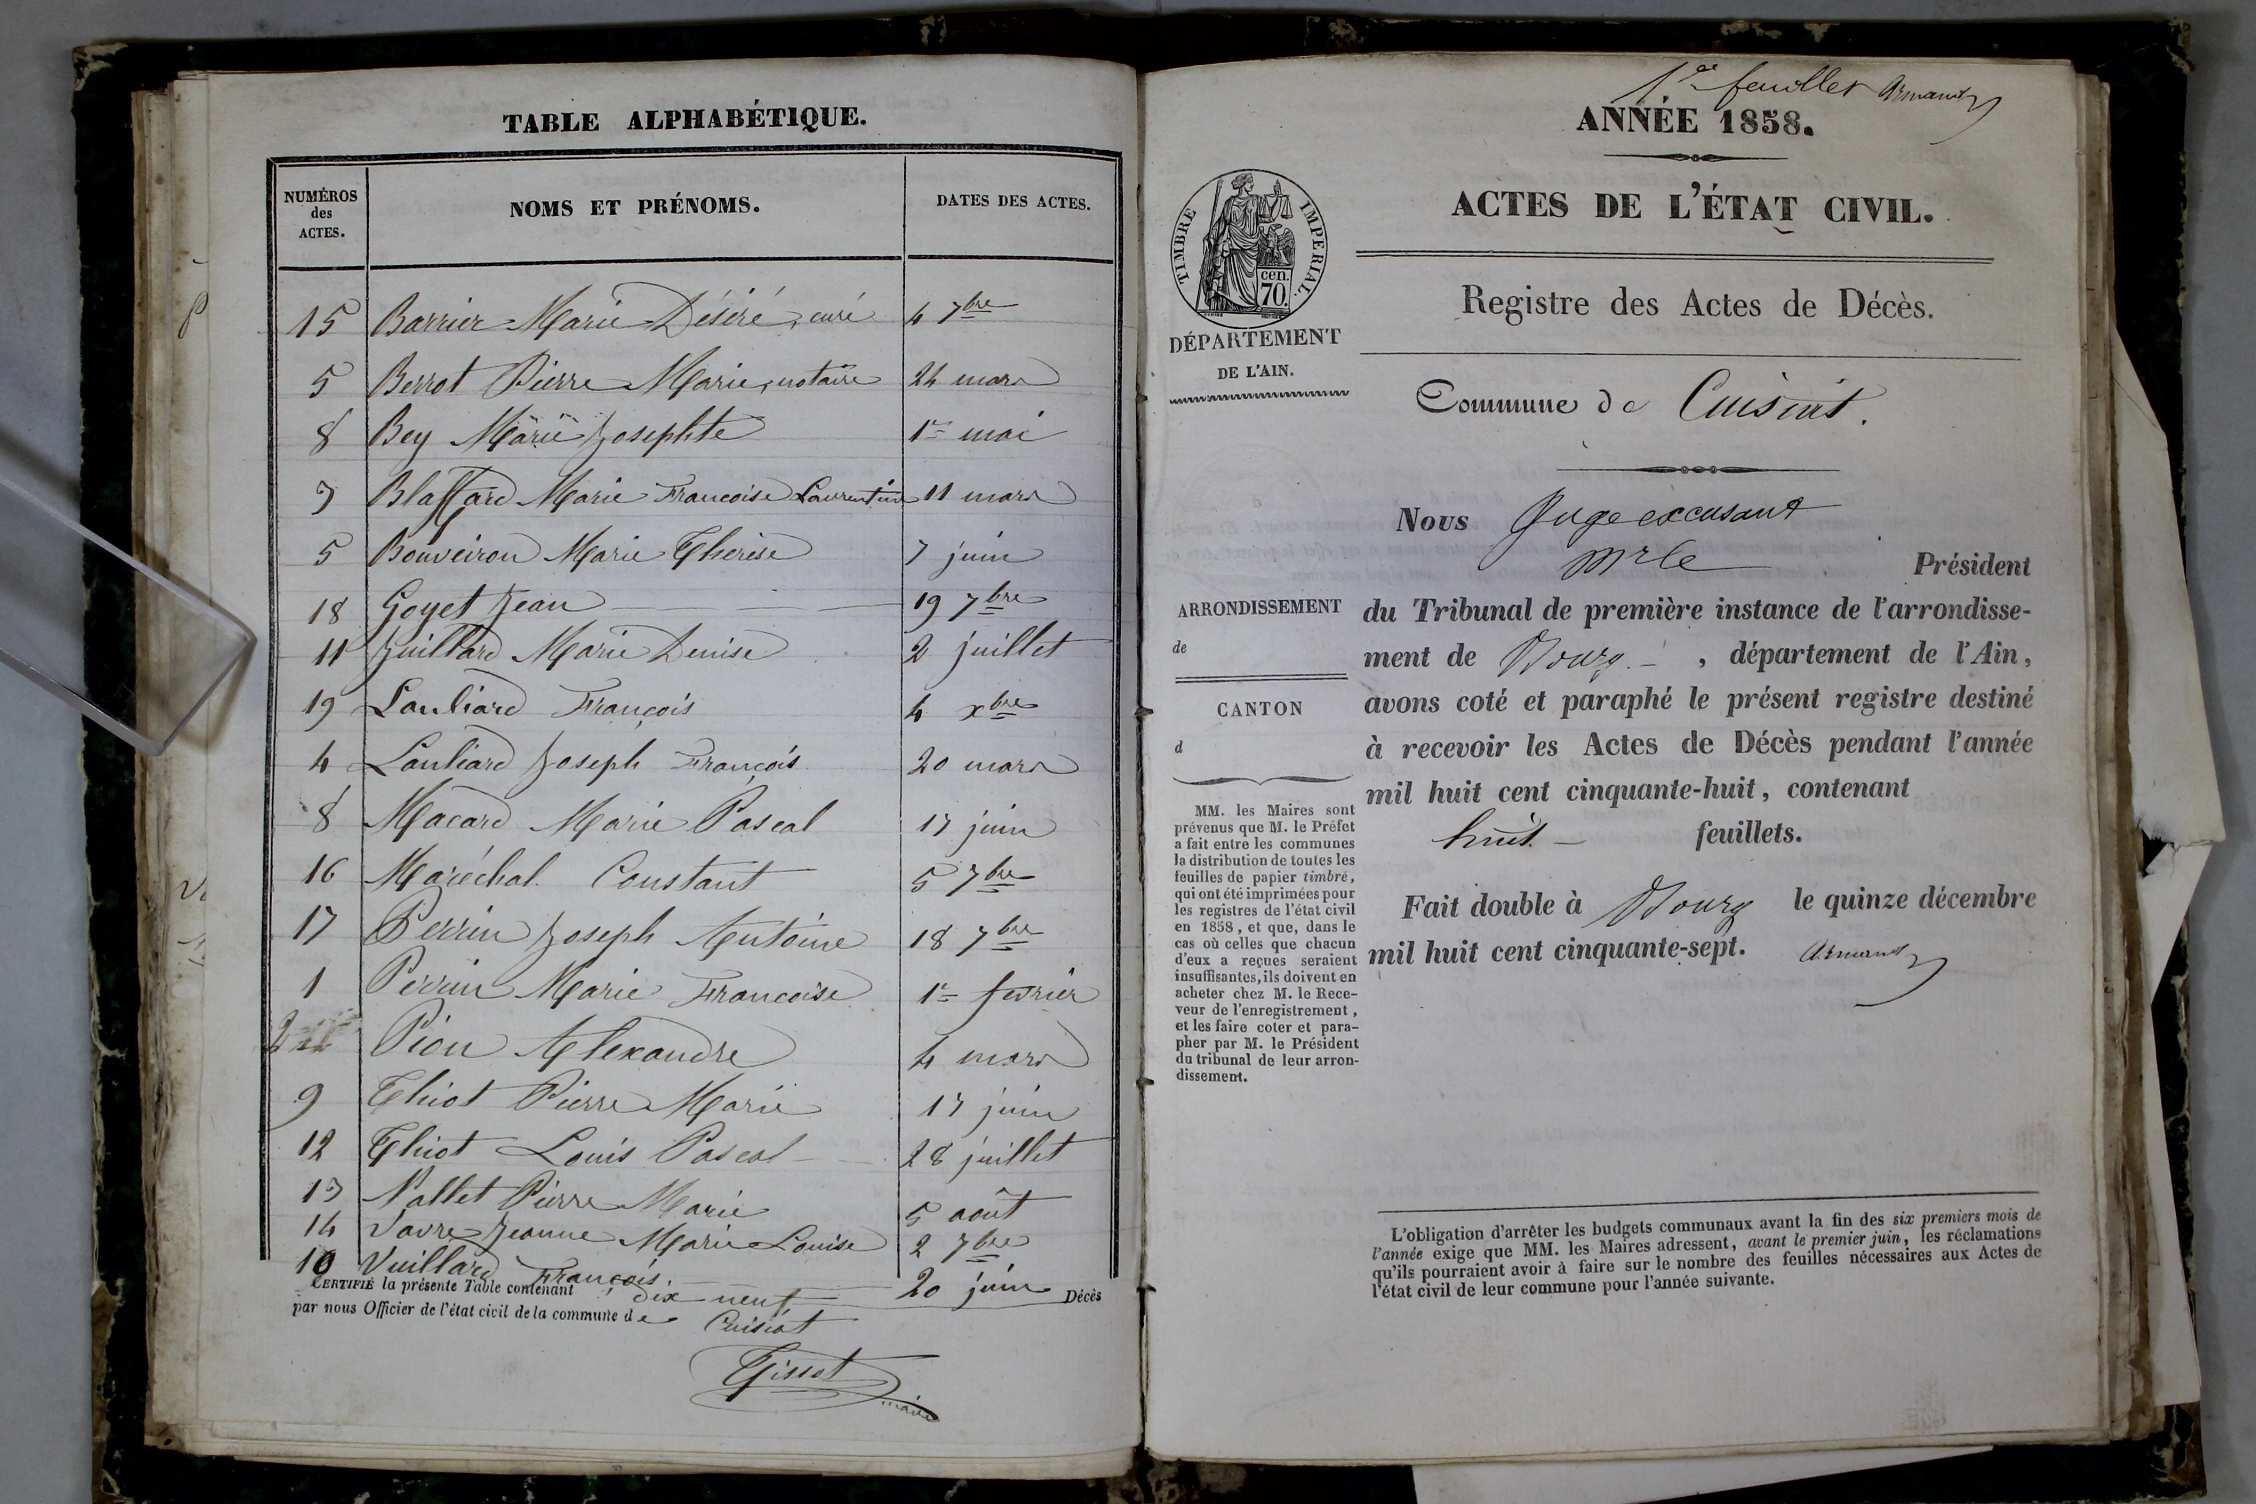 TABLE ALPHABÉTIQUE.
NUMÉROS des ACTES. NOMS ET PRÉNOMS. DATES DES ACTES.
15 Barrier Marie Désiré, curé 4 7bre
5 Berrot Pierre Marie, notaire 24 mars
8 Bey Marie Josephte 1er mai
3 Blaffard Marie Francoise Laurentine 11 mars
5 Bouveiron Marie Thérèse 7 juin
18 Goyet Jean 19 7bre
11 Juillard Marie Denise 2 juillet
19 Lauliard François 4 xbre
4 Lauliard Joseph François 20 mars
8 Macard Marie Pascal 17 juin
16 Maréchal Constant 5 7bre
17 Perrin Joseph Antoine 18 7bre
1 Perrin Marie Francoise 1er fevrier
2 Pion Alexandre 4 mars
9 Thiot Pierre Marie 17 juin
12 Thiot Louis Pascal 28 juillet
13 Vallet Pierre Marie 5 août
14 Vavre Jeanne Marie Louise 2 7bre
10 Vuillard François 20 juin
CERTIFIÉ la présente Table contenant dix neuf Décès
par nous Officier de l'état civil de la commune de Cuisiat
Tissot
maire
1er feuillet Armand
ANNÉE 1858.
ACTES DE L'ÉTAT CIVIL.
TIMBRE IMPERIAL.
cen.
70.
Registre des Actes de Décès.
DÉPARTEMENT
DE L'AIN.
Commune de Cuisiat.
Nous Juge excusant
Mr le Président
ARRONDISSEMENT
de
CANTON
d
du Tribunal de première instance de l'arrondisse-
ment de Bourg, département de l'Ain,
avons coté et paraphé le présent registre destiné
à recevoir les Actes de Décès pendant l'année
mil huit cent cinquante-huit, contenant
huit feuillets.
Fait double à Bourg le quinze décembre
mil huit cent cinquante-sept. Armand
MM. les Maires sont
prévenus que M. le Préfet
a fait entre les communes
la distribution de toutes les
feuilles de papier timbré,
qui ont été imprimées pour
les registres de l'état civil
en 1858, et que, dans le
cas où celles que chacun
d'eux a reçues seraient
insuffisantes, ils doivent en
acheter chez M. le Rece-
veur de l'enregistrement,
et les faire coter et para-
pher par M. le Président
du tribunal de leur arron-
dissement.
L'obligation d'arrêter les budgets communaux avant la fin des six premiers mois de
l'année exige que MM. les Maires adressent, avant le premier juin, les réclamations
qu'ils pourraient avoir à faire sur le nombre des feuilles nécessaires aux Actes de
l'état civil de leur commune pour l'année suivante.